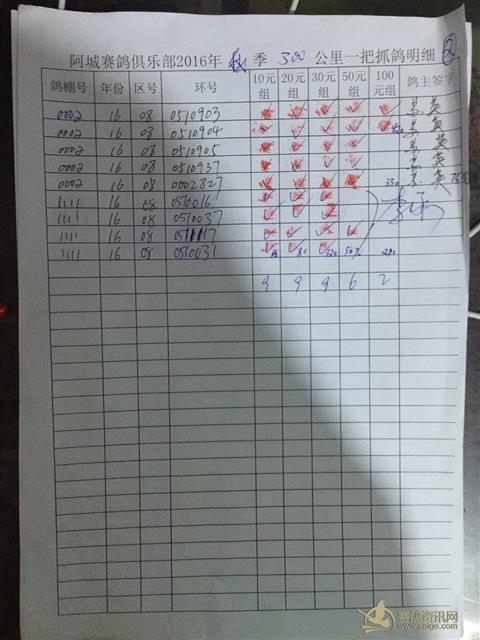 阿城赛鸽俱乐部2016年 秋 季 300 公里一把抓鸽明细 ②
鸽棚号 年份 区号 环号 10元组 20元组 30元组 50元组 100元组 鸽主签字
0002 16 08 0510903
0002 16 08 0510904
0002 16 08 0510905
0002 16 08 0510937
0002 16 08 0002827
1111 16 08 0510037
1111 16 08
1111 16 08 0510031
9 9 9 6 2
赛鸽资讯网
www.saige.com